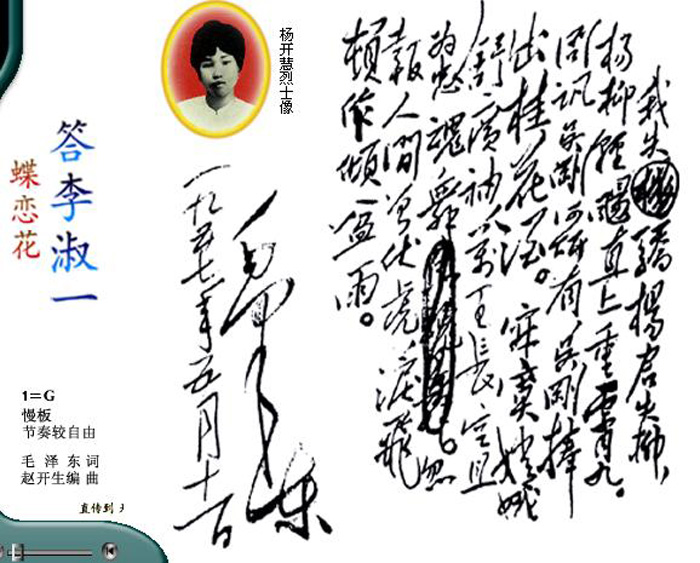 杨开慧烈士像
答李淑一
蝶恋花
1=G
慢板
节奏较自由
毛泽东词
赵开生编曲
直传到
我失骄杨君失柳，
杨柳轻飏直上重霄九。
问讯吴刚何所有吴刚捧
出桂花酒。寂寞嫦娥
舒广袖万里长空且
为忠魂舞。忽
報人间曾伏虎淚飛
頓作傾盆雨。
毛泽东
一九五七年五月十一日